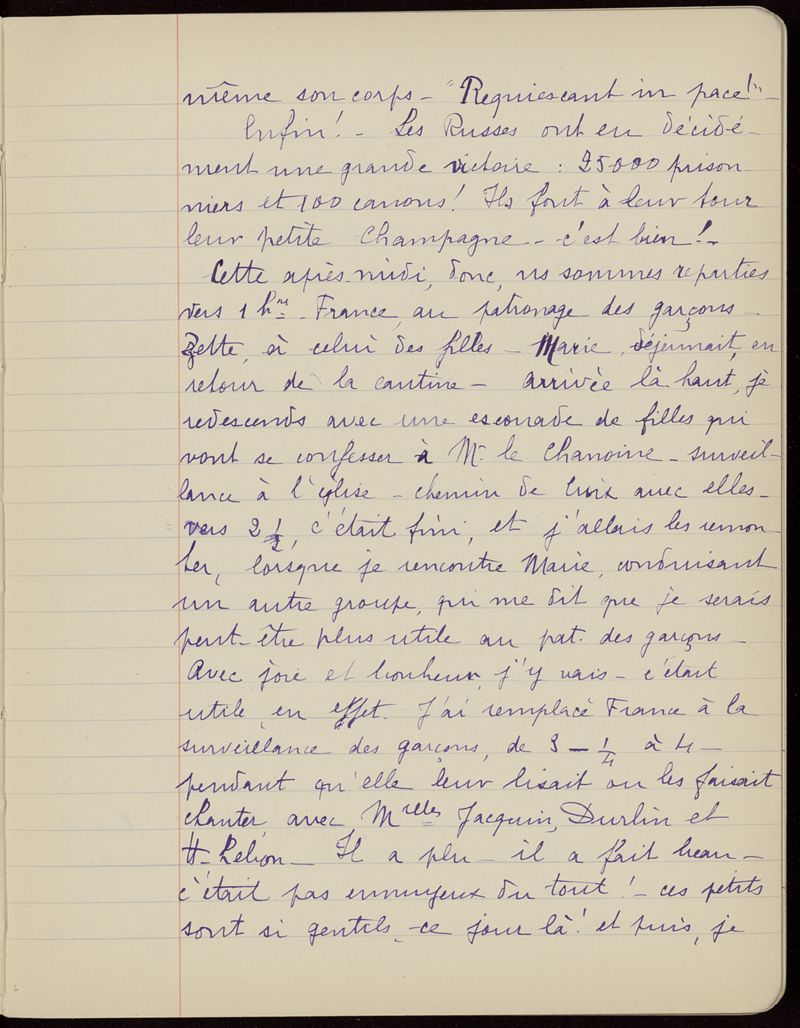 même son corps - "Requiescant in pace!" -
Enfin! - Les Russes ont eu décidé-
ment une grande victoire : 25000 prison-
niers et 100 canons! Ils font à leur tour
leur petite Champagne - c'est bien! -
Cette après-midi, donc, ns sommes reparties
vers 1 hre - France, au patronage des garçons -
Zette, à celui des filles - Marie, déjeunait, en
retour de la cantine - Arrivée là haut, je
redescends avec une escouade de filles qui
vont se confesser à Mr le Chanoine - surveil-
lance à l'église - chemin de Croix avec elles -
vers 2 1/2, c'était fini, et j'allais les remon-
ter, lorsque je rencontre Marie, conduisant
un autre groupe, qui me dit que je serais
peut-être plus utile au pat. des garçons -
Avec joie et bonheur, j'y vais - c'était
utile, en effet. J'ai remplacé France à la
surveillance des garçons, de 3 - 1/4 à 4 -
pendant qu'elle leur lisait ou les faisait
chanter avec Mrelles Jacquin, Durlin et
H- - Il a plu - il a fait beau -
c'était pas ennuyeux du tout! - ces petits
sont si gentils, ce jour là! et puis, je